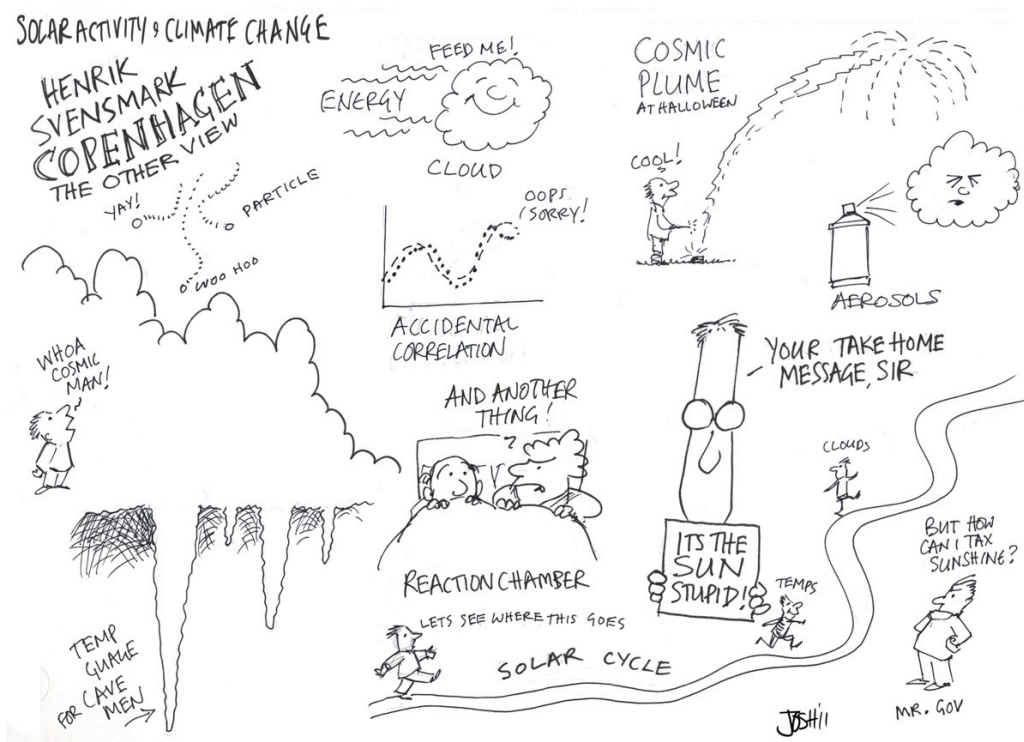 SOLAR ACTIVITY & CLIMATE CHANGE
HENRIK
SVENSMARK
COPENHAGEN
THE OTHER VIEW
YAY!
PARTICLE
WOO HOO
WHOA
COSMIC
MAN!
TEMP
GUAGE
FOR CAVE
MEN
FEED ME!
ENERGY
CLOUD
OOPS
SORRY!
ACCIDENTAL
CORRELATION
AND ANOTHER
THING!
?
REACTION CHAMBER
COSMIC
PLUME
AT HALLOWEEN
COOL!
AEROSOLS
YOUR TAKE HOME
MESSAGE, SIR
ITS THE
SUN
STUPID!
LETS SEE WHERE THIS GOES
SOLAR CYCLE
TEMPS
CLOUDS
BUT HOW
CAN I TAX
SUNSHINE?
MR. GOV
JOSH11